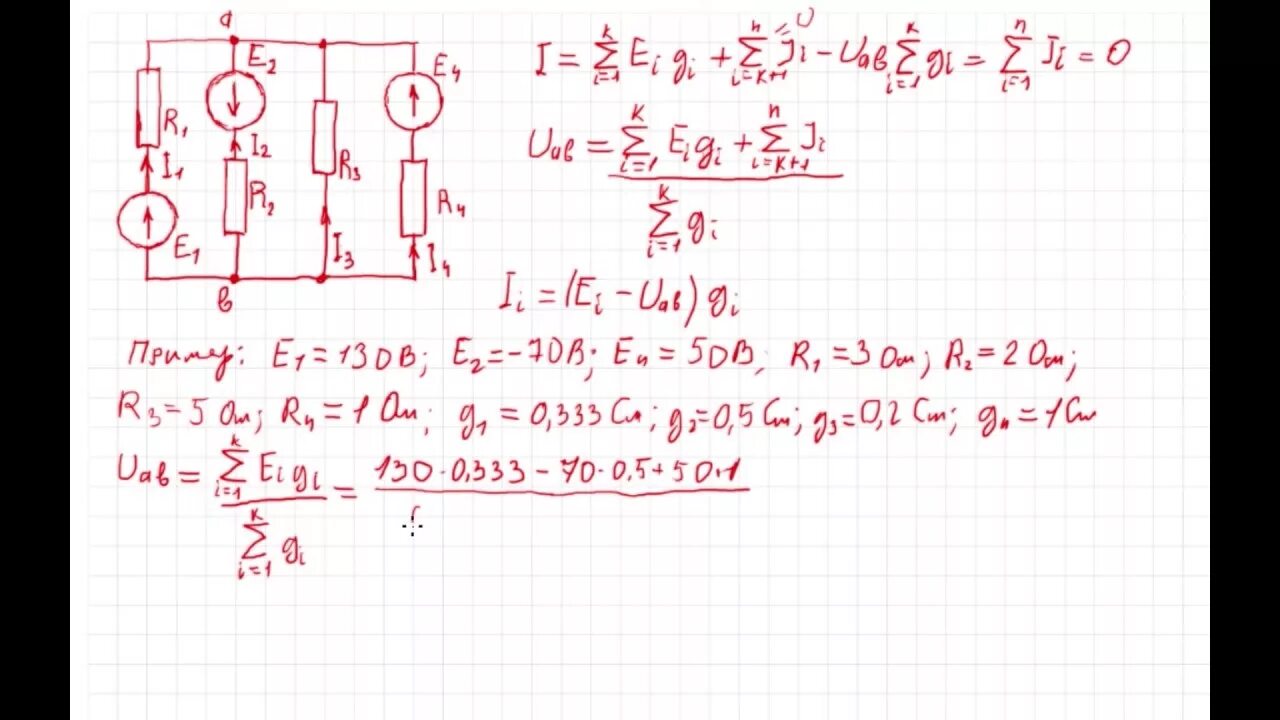 a
E₂
E₄
R₁
I₂
I₁
R₂
R₃
R₄
E₁
I₃
I₄
в
I = ∑ᵢ₌₁ᵏ Eᵢ gᵢ + ∑ᵢ₌ₖ₊₁ⁿ Jᵢ − Uав ∑ᵢ₌₁ᵏ gᵢ = ∑ᵢ₌₁ⁿ Jᵢ = 0
Uав = (∑ᵢ₌₁ᵏ Eᵢ gᵢ + ∑ᵢ₌ₖ₊₁ⁿ Jᵢ) / ∑ᵢ₌₁ᵏ gᵢ
Iᵢ = (Eᵢ − Uав) gᵢ
Пример: E₁ = 130В; E₂ = −70В; E₄ = 50В; R₁ = 3 Ом; R₂ = 2 Ом;
R₃ = 5 Ом; R₄ = 1 Ом; g₁ = 0,333 См; g₂ = 0,5 См; g₃ = 0,2 См; g₄ = 1 См
Uав = ∑ᵢ₌₁ᵏ Eᵢ gᵢ / ∑ᵢ₌₁ᵏ gᵢ = 130·0,333 − 70·0,5 + 50·1